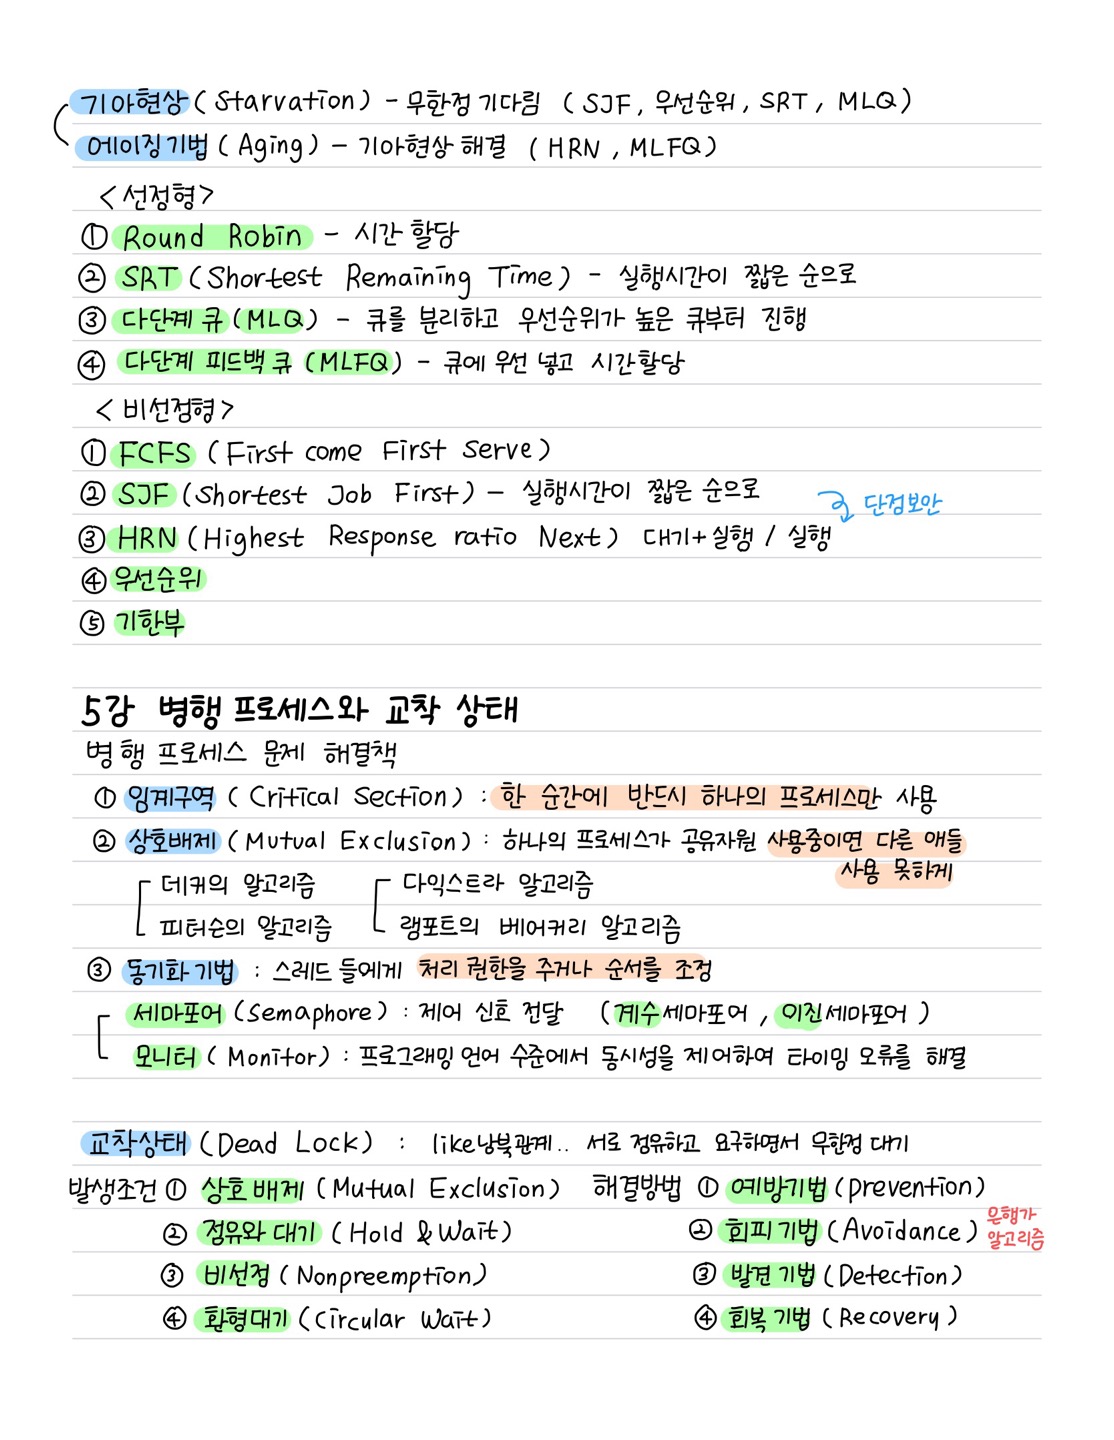 기아현상 (Starvation) - 무한정 기다림 (SJF, 우선순위, SRT, MLQ)
에이징기법 (Aging) - 기아현상 해결 (HRN, MLFQ)
<선정형>
① Round Robin - 시간 할당
② SRT (Shortest Remaining Time) - 실행시간이 짧은 순으로
③ 다단계 큐 (MLQ) - 큐를 분리하고 우선순위가 높은 큐부터 진행
④ 다단계 피드백 큐 (MLFQ) - 큐에 우선 넣고 시간할당
<비선점형>
① FCFS (First come First Serve)
② SJF (Shortest Job First) - 실행시간이 짧은 순으로
단점보안
③ HRN (Highest Response ratio Next) 대기+실행 / 실행
④ 우선순위
⑤ 기한부
5강 병행 프로세스와 교착 상태
병행 프로세스 문제 해결책
① 임계구역 (Critical Section) : 한 순간에 반드시 하나의 프로세스만 사용
② 상호배제 (Mutual Exclusion) : 하나의 프로세스가 공유자원 사용중이면 다른 애들
사용 못하게
데커의 알고리즘 다익스트라 알고리즘
피터슨의 알고리즘 램포트의 베어커리 알고리즘
③ 동기화 기법 : 스레드 들에게 처리 권한을 주거나 순서를 조정
세마포어 (Semaphore) : 제어 신호 전달 (계수세마포어, 이진세마포어)
모니터 (Monitor) : 프로그래밍 언어 수준에서 동시성을 제어하여 타이밍 오류를 해결
교착상태 (Dead Lock) : like남북관계.. 서로 점유하고 요구하면서 무한정 대기
발생조건 ① 상호 배제 (Mutual Exclusion) 해결방법 ① 예방기법 (prevention)
② 점유와 대기 (Hold & Wait) ② 회피 기법 (Avoidance) 은행가 알고리즘
③ 비선점 (Nonpreemption) ③ 발견 기법 (Detection)
④ 환형대기 (Circular Wait) ④ 회복 기법 (Recovery)